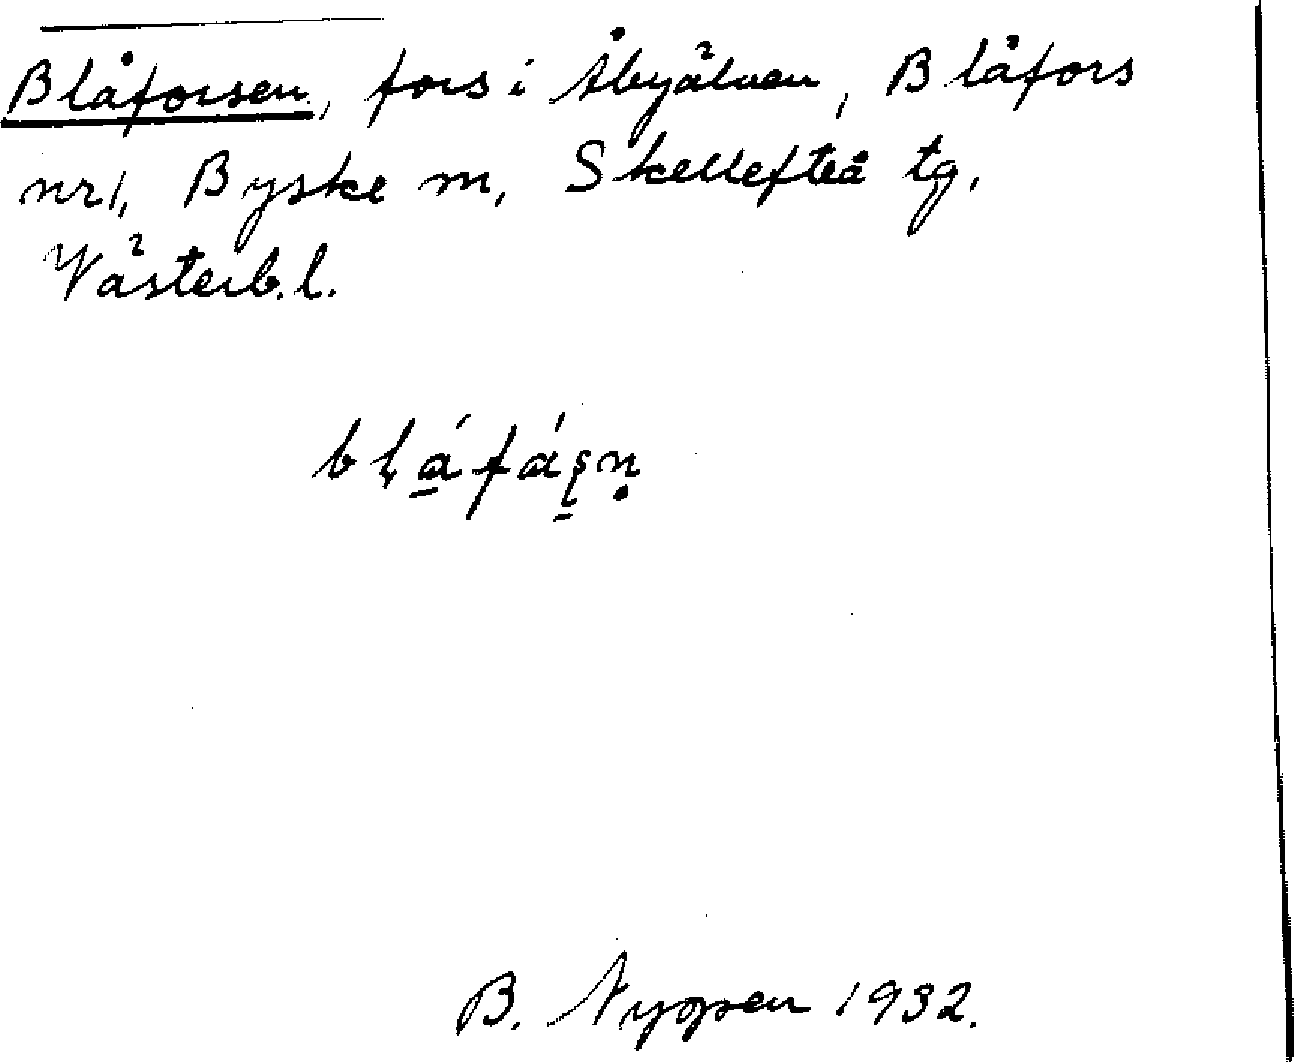 Blåforsen, fors i Åbyälven, Blåfors
nr 1, Byske sn, Skellefteå tg,
Västerb. l.
bḷǻ̱fǻṣṇ
B. Nygren 1932.